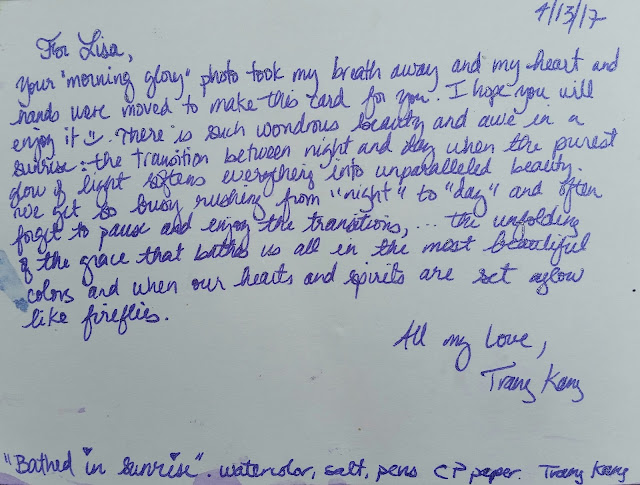 4/13/17
For Lisa,
Your "morning glory" photo took my breath away and my heart and
hands were moved to make this card for you. I hope you will
enjoy it ☺. There is such wondrous beauty and awe in a
sunrise: the transition between night and day when the purest
glow of light softens everything into unparalleled beauty.
We get so busy rushing from "night" to "day" and often
forget to pause and enjoy the transitions, ... the unfolding
of the grace that bathes us all in the most beautiful
colors and when our hearts and spirits are set aglow
like fireflies.
All my Love,
Trang Kang
"Bathed in Sunrise". watercolor, salt, pens CP paper. Trang Kang